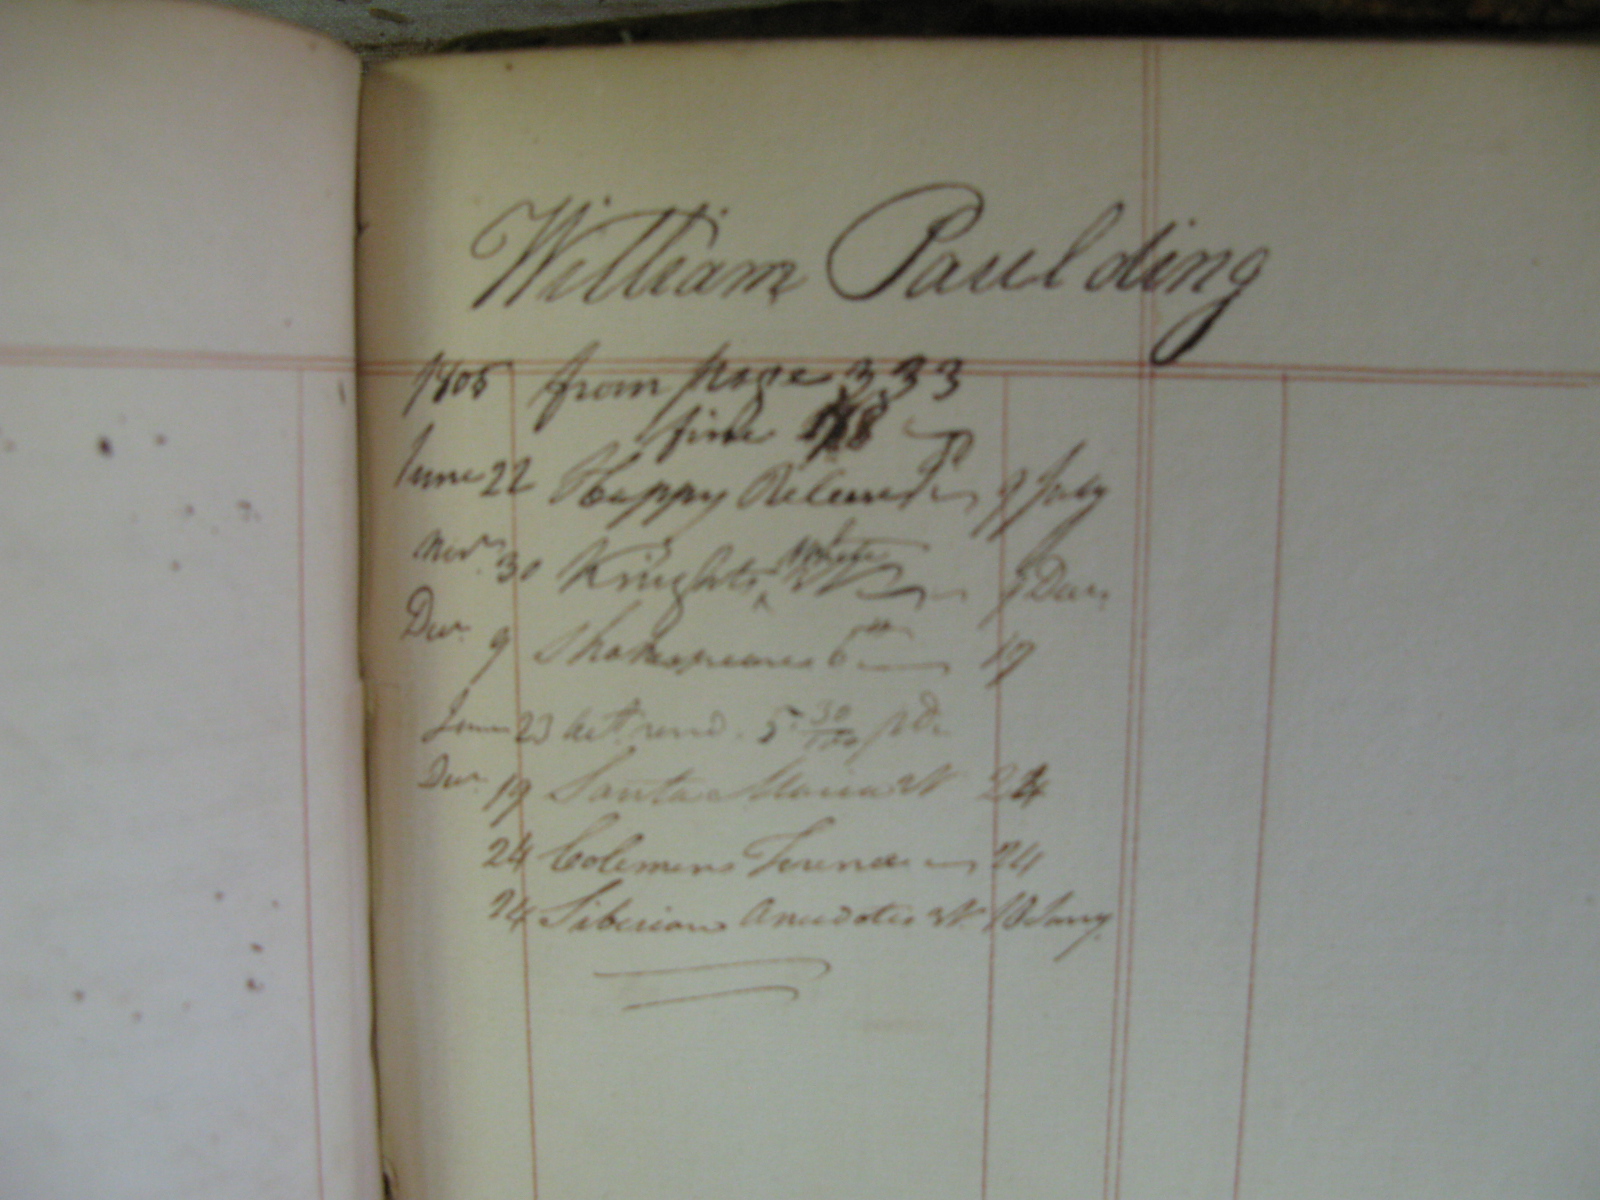 William Paulding
1805 from page 333
fine
June 22 Happy 9 July
Novr. 30 Knights White 9 Decr.
Decr. 9 Shakespeares 6th 19
23 5 30/100 pd.
Decr. 19 Santa Maria 24
24 Colemens Terence 24
24 Siberian Anecdotes 18 Jany.